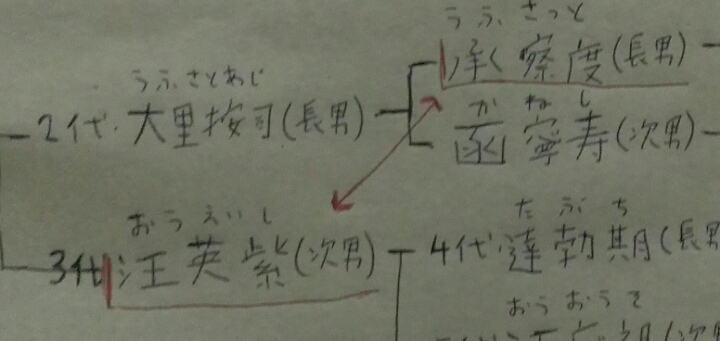 うふさっと
承察度(長男)
うふさとあじ
2代・大里按司(長男)
かねし
函寧寿(次男)
おうえいし
3代汪英紫(次男)
たぶち
4代・達勃期(長男
おうおうそ